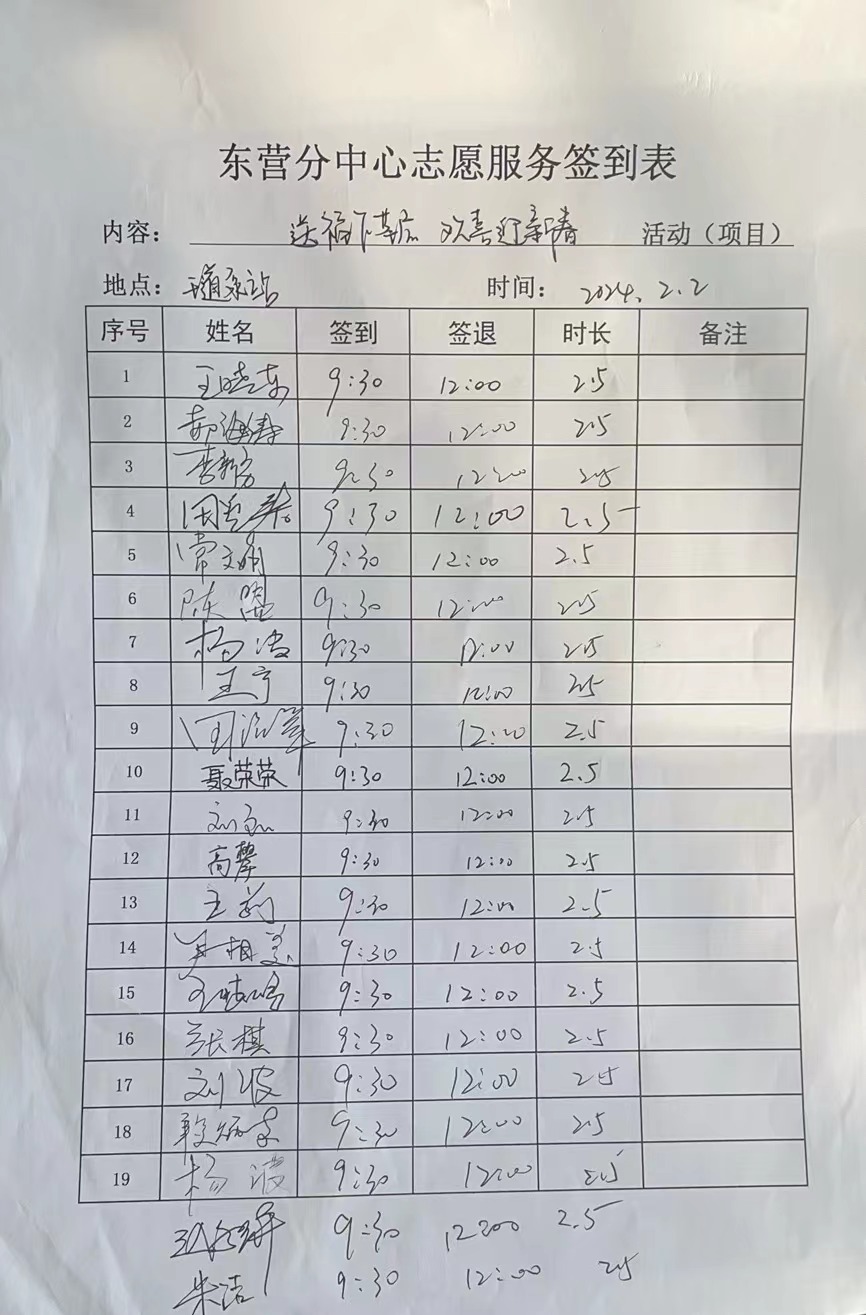 东营分中心志愿服务签到表
内容: 送福下基层 欢喜迎新春 活动（项目）
地点: 站 时间: 2024.2.2
序号 姓名 签到 签退 时长 备注
1 王晓东 9:30 12:00 2.5
2 郝海涛 9:30 12:00 2.5
3 李新芳 9:30 12:00 2.5
4 9:30 12:00 2.5
5 常文娟 9:30 12:00 2.5
6 陈 9:30 12:00 2.5
7 杨洁 9:30 12:00 2.5
8 王宁 9:30 12:00 2.5
9 9:30 12:00 2.5
10 聂荣荣 9:30 12:00 2.5
11 刘 9:30 12:00 2.5
12 高馨 9:30 12:00 2.5
13 王莉 9:30 12:00 2.5
14 尹相美 9:30 12:00 2.5
15 王 9:30 12:00 2.5
16 张棋 9:30 12:00 2.5
17 刘波 9:30 12:00 2.5
18 9:30 12:00 2.5
19 杨波 9:30 12:00 2.5
9:30 12:00 2.5
朱洁 9:30 12:00 2.5